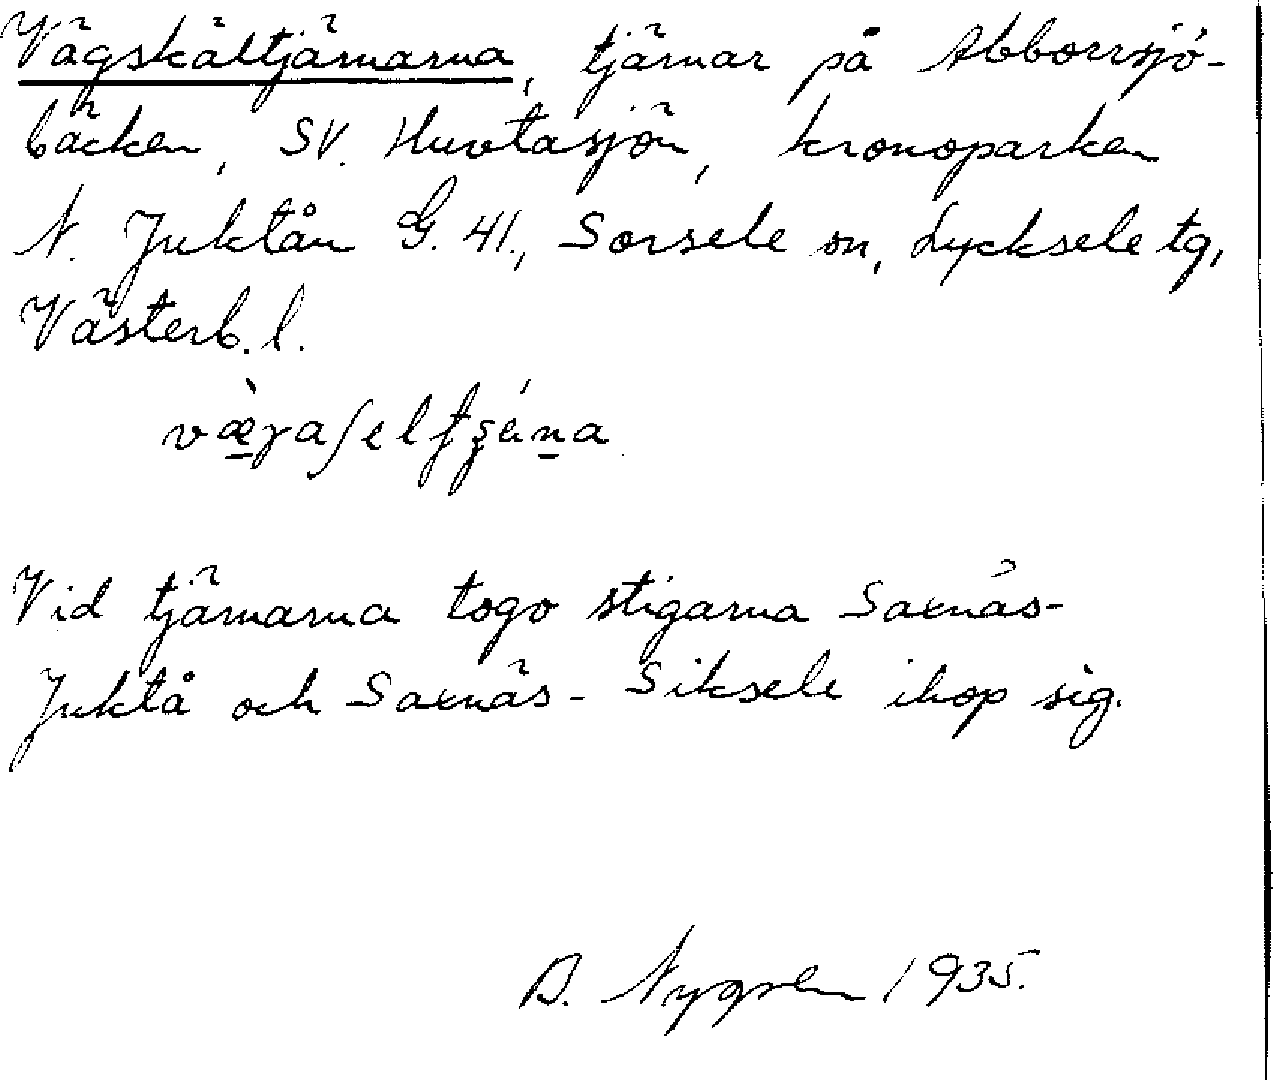 Vägskältjärnarna, tjärnar på Abborrsjö-
bäcken, SV. Huvtasjön, kronoparken
N. Juktån G. 41., Sorsele sn, Lycksele tg,
Västerb. l.
Vid tjärnarna togo stigarna Saxnäs-
Juktå och Saxnäs - Siksele ihop sig.
Nygren 1935.